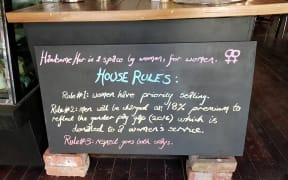 Handsome Her is a space by women, for women.
HOUSE RULES:
Rule#1: women have priority seating.
Rule#2: men will be charged an 18% premium to
reflect the gender pay gap (2016) which is
donated to a women's service.
Rule#3: respect goes both ways.